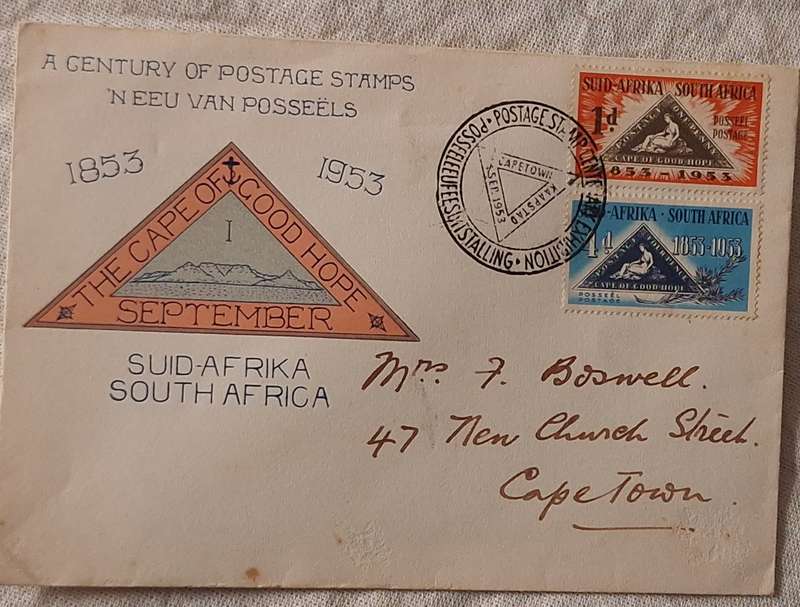 A CENTURY OF POSTAGE STAMPS
'N EEU VAN POSSEËLS
1853 1953
THE CAPE OF GOOD HOPE
I
SEPTEMBER
SUID-AFRIKA
SOUTH AFRICA
POSTAGE STAMP CENTENARY EXHIBITION
POSSEËLEEUFEESUITSTALLING
CAPETOWN
1 SEP. 1953
KAAPSTAD
SUID-AFRIKA SOUTH AFRICA
1d
POSSEËL
POSTAGE
POSTAGE ONE PENNY
CAPE OF GOOD HOPE
1853 - 1953
-AFRIKA · SOUTH AFRICA
4d 1853-1953
POSTAGE FOURPENCE
CAPE OF GOOD HOPE
POSSEËL
POSTAGE
Mrs. F. Boswell.
47 New Church Street.
Cape Town.